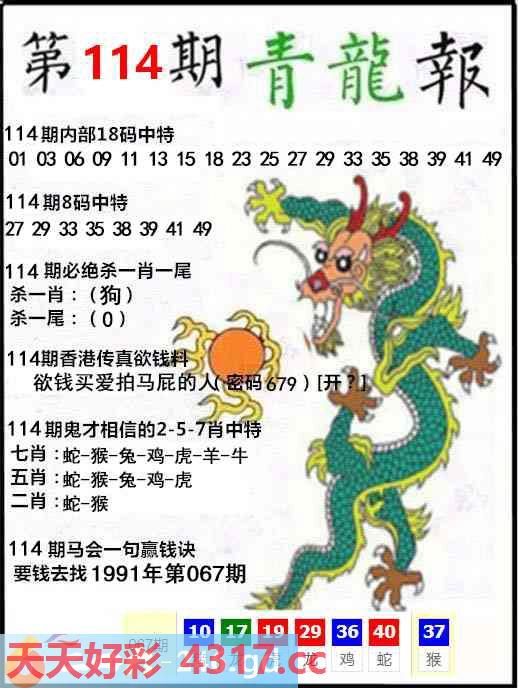 第114期青龍報
114期内部18码中特
01 03 06 09 11 13 15 18 23 25 27 29 33 35 38 39 41 49
114期8码中特
27 29 33 35 38 39 41 49
114期必绝杀一肖一尾
杀一肖：（狗）
杀一尾：（0）
114期香港传真欲钱料
欲钱买爱拍马屁的人(密码679)[开？]
114期鬼才相信的2-5-7肖中特
七肖：蛇-猴-兔-鸡-虎-羊-牛
五肖：蛇-猴-兔-鸡-虎
二肖：蛇-猴
114期马会一句赢钱诀
要钱去找1991年第067期
067期 10 17 19 29 36 40 37
龙 鸡 蛇 猴
天天好彩 4317.cc